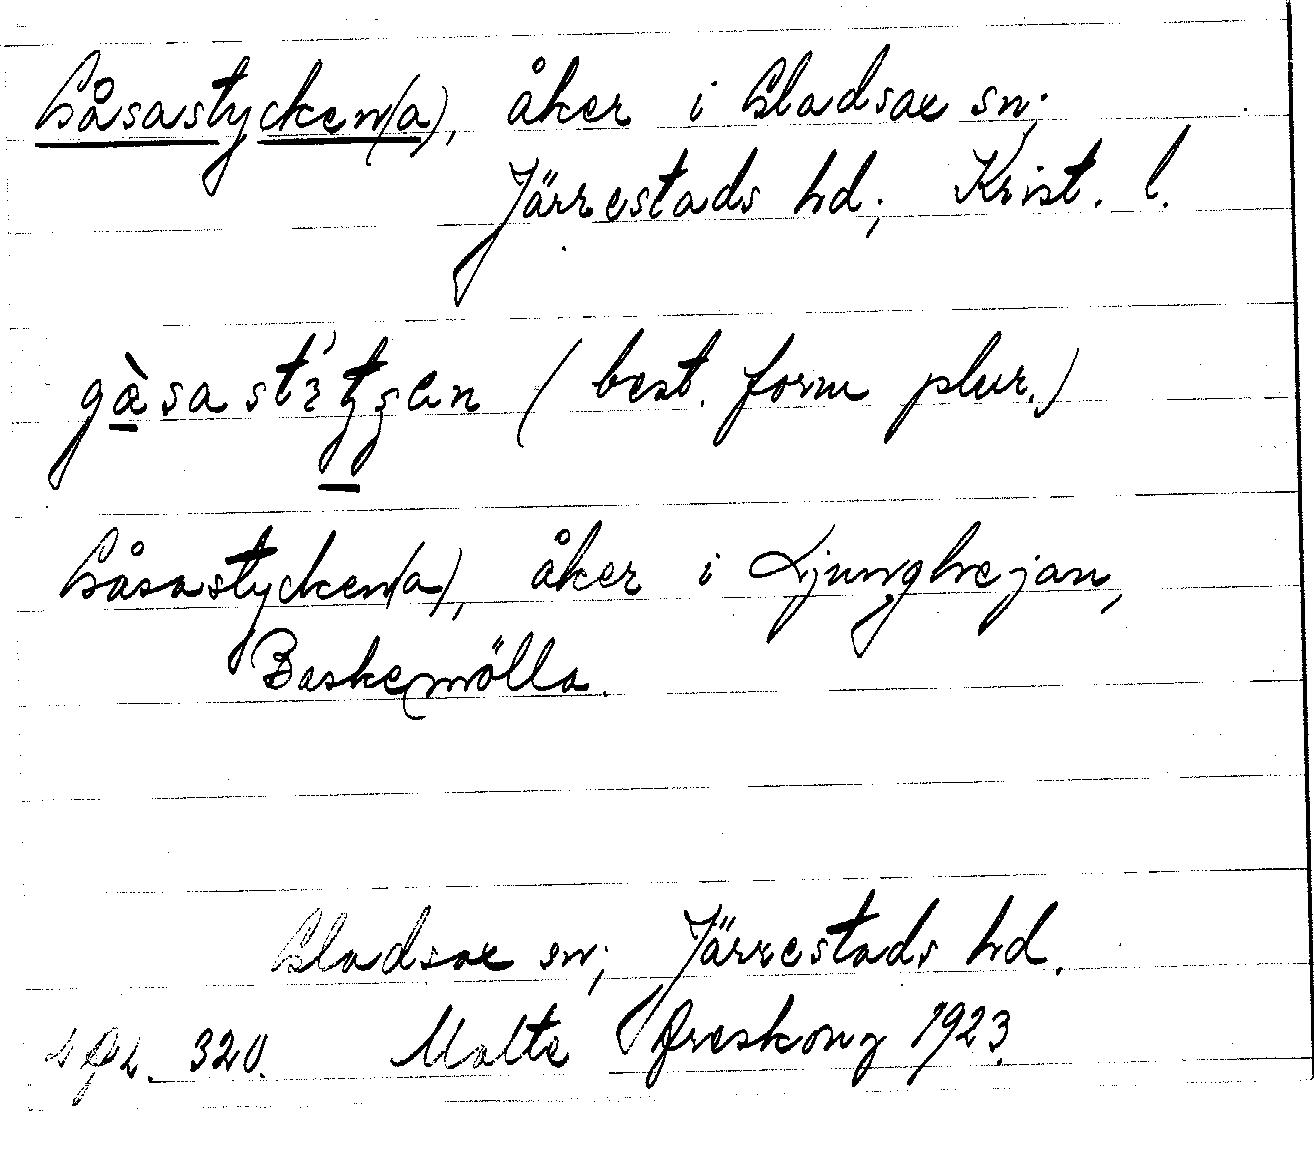 Gåsastycken(a), åker i Gladsax sn;
Järrestads hd; Krist. l.
(best. form plur.)
Gåsastycken(a), åker i Ljunghejan,
Baskemölla.
Gladsax sn; Järrestads hd.
320. Malte Areskoug 1923.